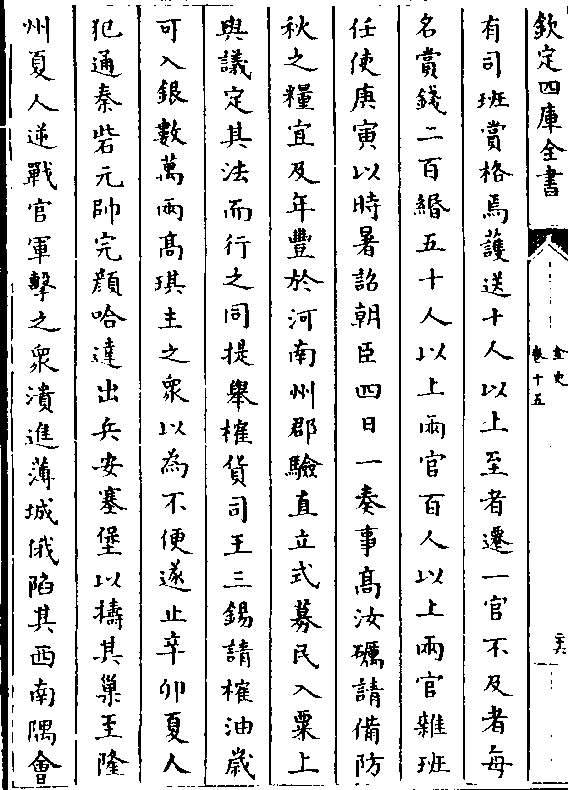 欽定四庫全書
金史
卷十五
有司班賞格焉護送十人以上至者遷一官不及者每
名賞錢二百緡五十人以上兩官百人以上兩官雜班
任使庚寅以時暑詔朝臣四日一奏事髙汝礪請備防
秋之糧宜及年豐於河南州郡驗直立式募民入粟上
與議定其法而行之同提舉榷貨司王三錫請榷油歲
可入銀數萬兩髙琪主之衆以為不便遂止辛卯夏人
犯通秦砦元帥完顔哈達出兵安塞堡以擣其巢至隆
州夏人逆戰官軍擊之衆潰進薄城俄陷其西南隅會